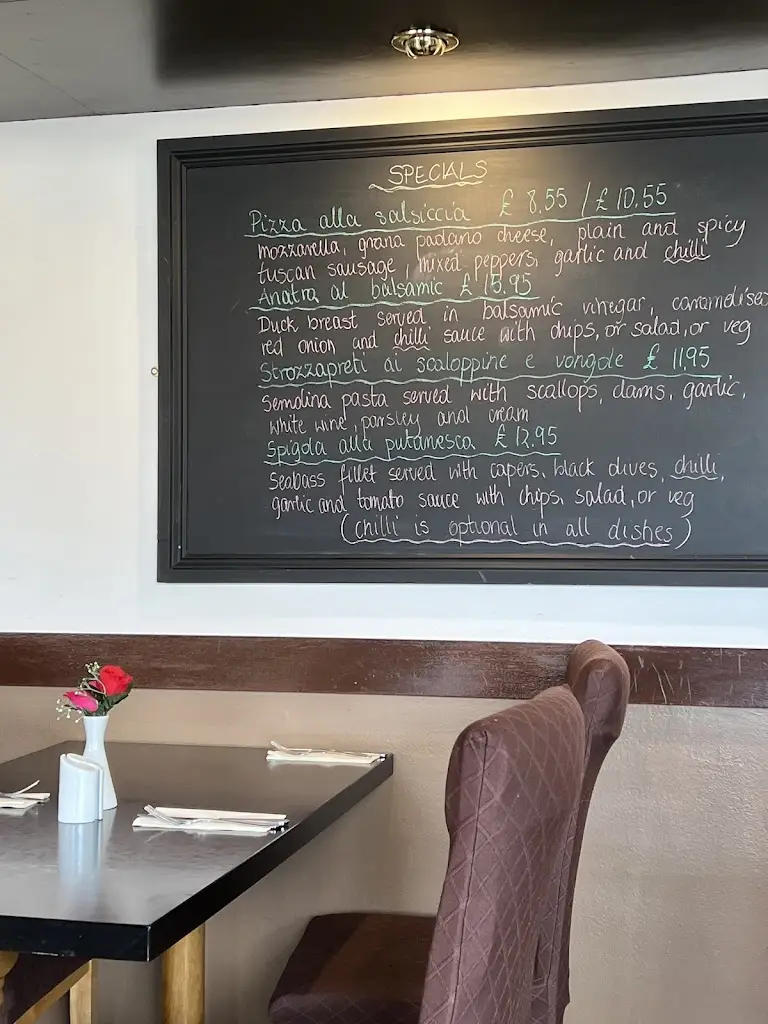 SPECIALS
Pizza alla salsiccia £ 8.55 / £ 10.55
mozzarella, grana padano cheese, plain and spicy
tuscan sausage, mixed peppers, garlic and chilli
Anatra al balsamic £ 15.95
Duck breast served in balsamic vinegar, caramelised
red onion and chilli sauce with chips, or salad, or veg
Strozzapreti ai scaloppine e vongole £ 11.95
Semolina pasta served with scallops, clams, garlic,
white wine, parsley and cream
Spigola alla putanesca £ 12.95
Seabass fillet served with capers, black olives, chilli,
garlic and tomato sauce with chips, salad, or veg
(chilli is optional in all dishes)